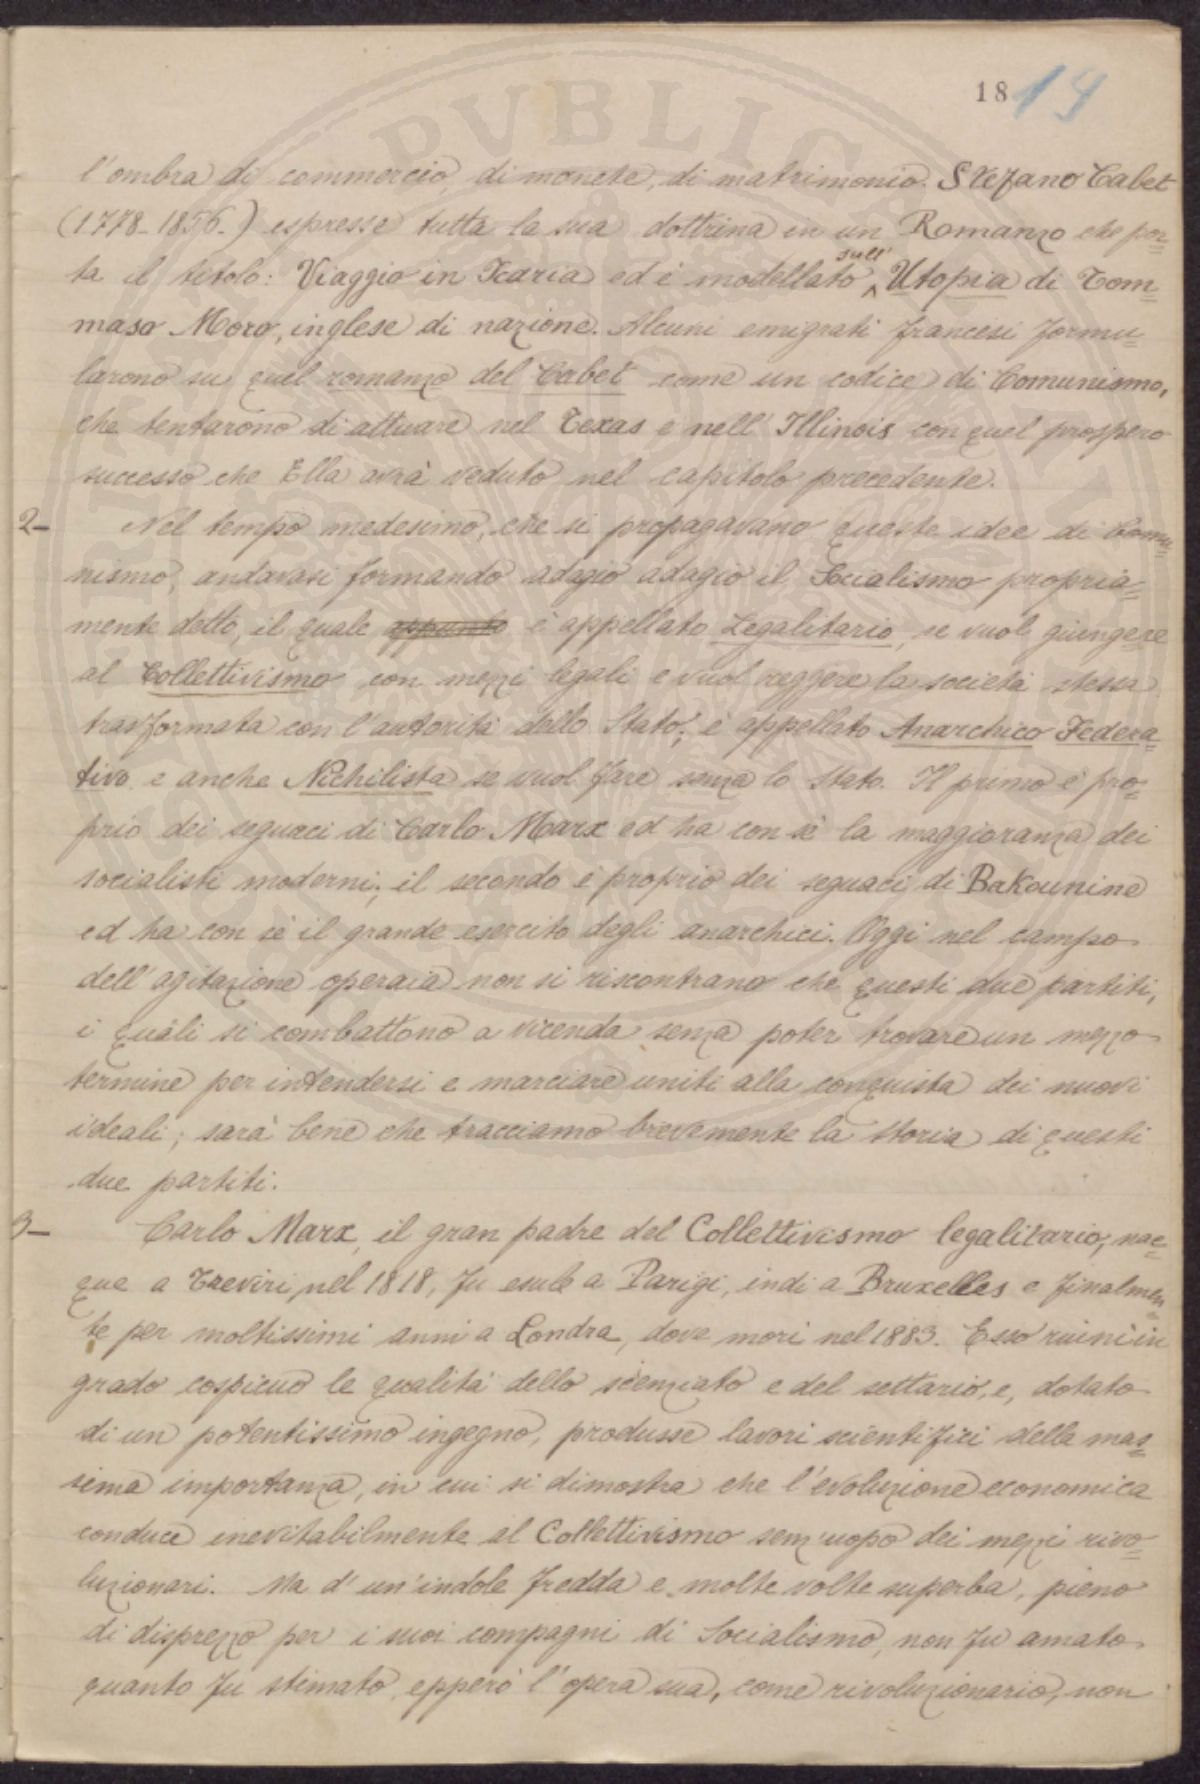 18 19
l'ombra di commercio, di monete, di matrimonio. Stefano Cabet
(1778-1856-) espresse tutta la sua dottrina in un Romanzo che por=
ta il titolo: Viaggio in Icaria ed è modellato sull' Utopia di Tom=
maso Moro, inglese di nazione. Alcuni emigrati francesi formu=
larono su quel romanzo del Cabet come un codice di Comunismo,
che tentarono di attuare nel Texas e nell'Illinois con quel prospero
successo che Ella avrà veduto nel capitolo precedente.
2- Nel tempo medesimo, che si propagavano queste idee di Comu=
nismo, andavasi formando adagio adagio il Socialismo propria=
mente detto, il quale appunto è appellato Legalitario, se vuol giungere
al Collettivismo con mezzi legali e vuol reggere la società stessa
trasformata con l'autorità dello Stato; è appellato Anarchico Federa=
tivo e anche Nichilista se vuol fare senza lo Stato. Il primo è pro=
prio dei seguaci di Carlo Marx ed ha con sè la maggioranza dei
socialisti moderni; il secondo è proprio dei seguaci di Bakounine
ed ha con sè il grande esercito degli anarchici. Oggi nel campo
dell'agitazione operaia non si riscontrano che questi due partiti,
i quali si combattono a vicenda senza poter trovare un mezzo
termine per intendersi e marciare uniti alla conquista dei nuovi
ideali; sarà bene che tracciamo brevemente la storia di questi
due partiti.
3- Carlo Marx, il gran padre del Collettivismo legalitario, nac=
que a Treviri, nel 1818, fu esule a Parigi, indi a Bruxelles e finalmen=
te per moltissimi anni a Londra, dove morì nel 1883. Esso riunì in
grado cospicuo le qualità dello scienziato e del settario, e, dotato
di un potentissimo ingegno, produsse lavori scientifici della mas=
sima importanza, in cui si dimostra che l'evoluzione economica
conduce inevitabilmente al Collettivismo senz'uopo dei mezzi rivo=
luzionari. Ma d'un'indole fredda e molte volte superba, pieno
di disprezzo per i suoi compagni di Socialismo, non fu amato
quanto fu stimato, epperò l'opera sua, come rivoluzionario, non